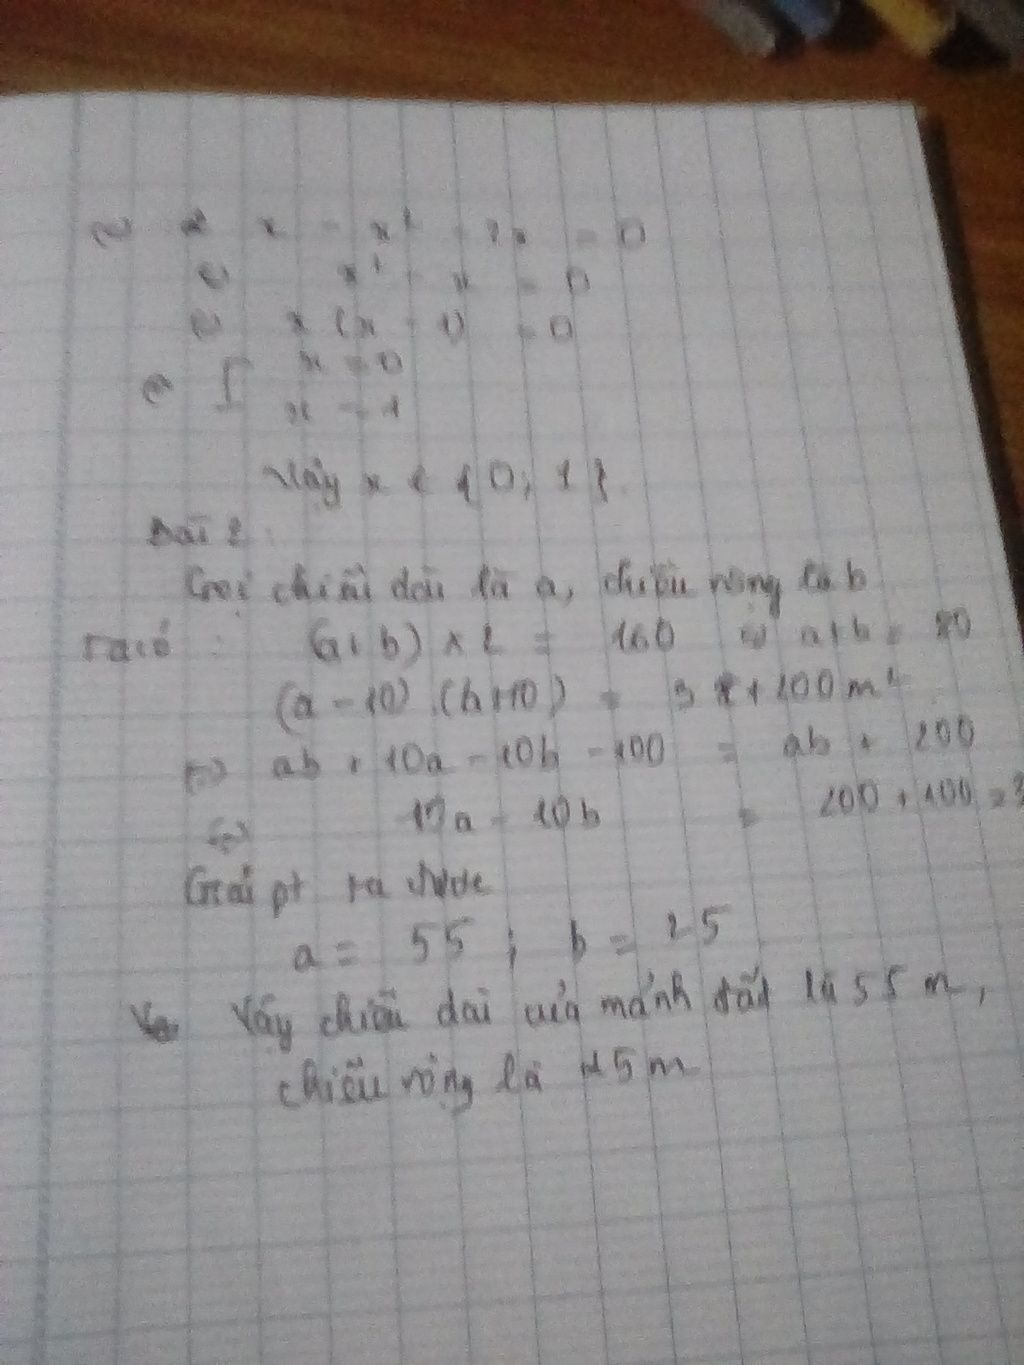 x - x² - 2x = 0
x² - x = 0
x (x - 1) = 0
x = 0
x = 1
Vậy x ∈ {0; 1}.
Bài 2:
Gọi chiều dài là a, chiều rộng là b
Ta có: (a+b) x 2 = 160 ⇔ a+b = 80
(a - 10).(b+10) = + 200 m²
⇔ ab + 10a - 10b - 100 = ab + 200
⇔ 10a - 10b = 200 + 100 = 3
Giải pt ra được
a = 55 ; b = 25
Vậy chiều dài của mảnh đất là 55 m,
chiều rộng là 25 m